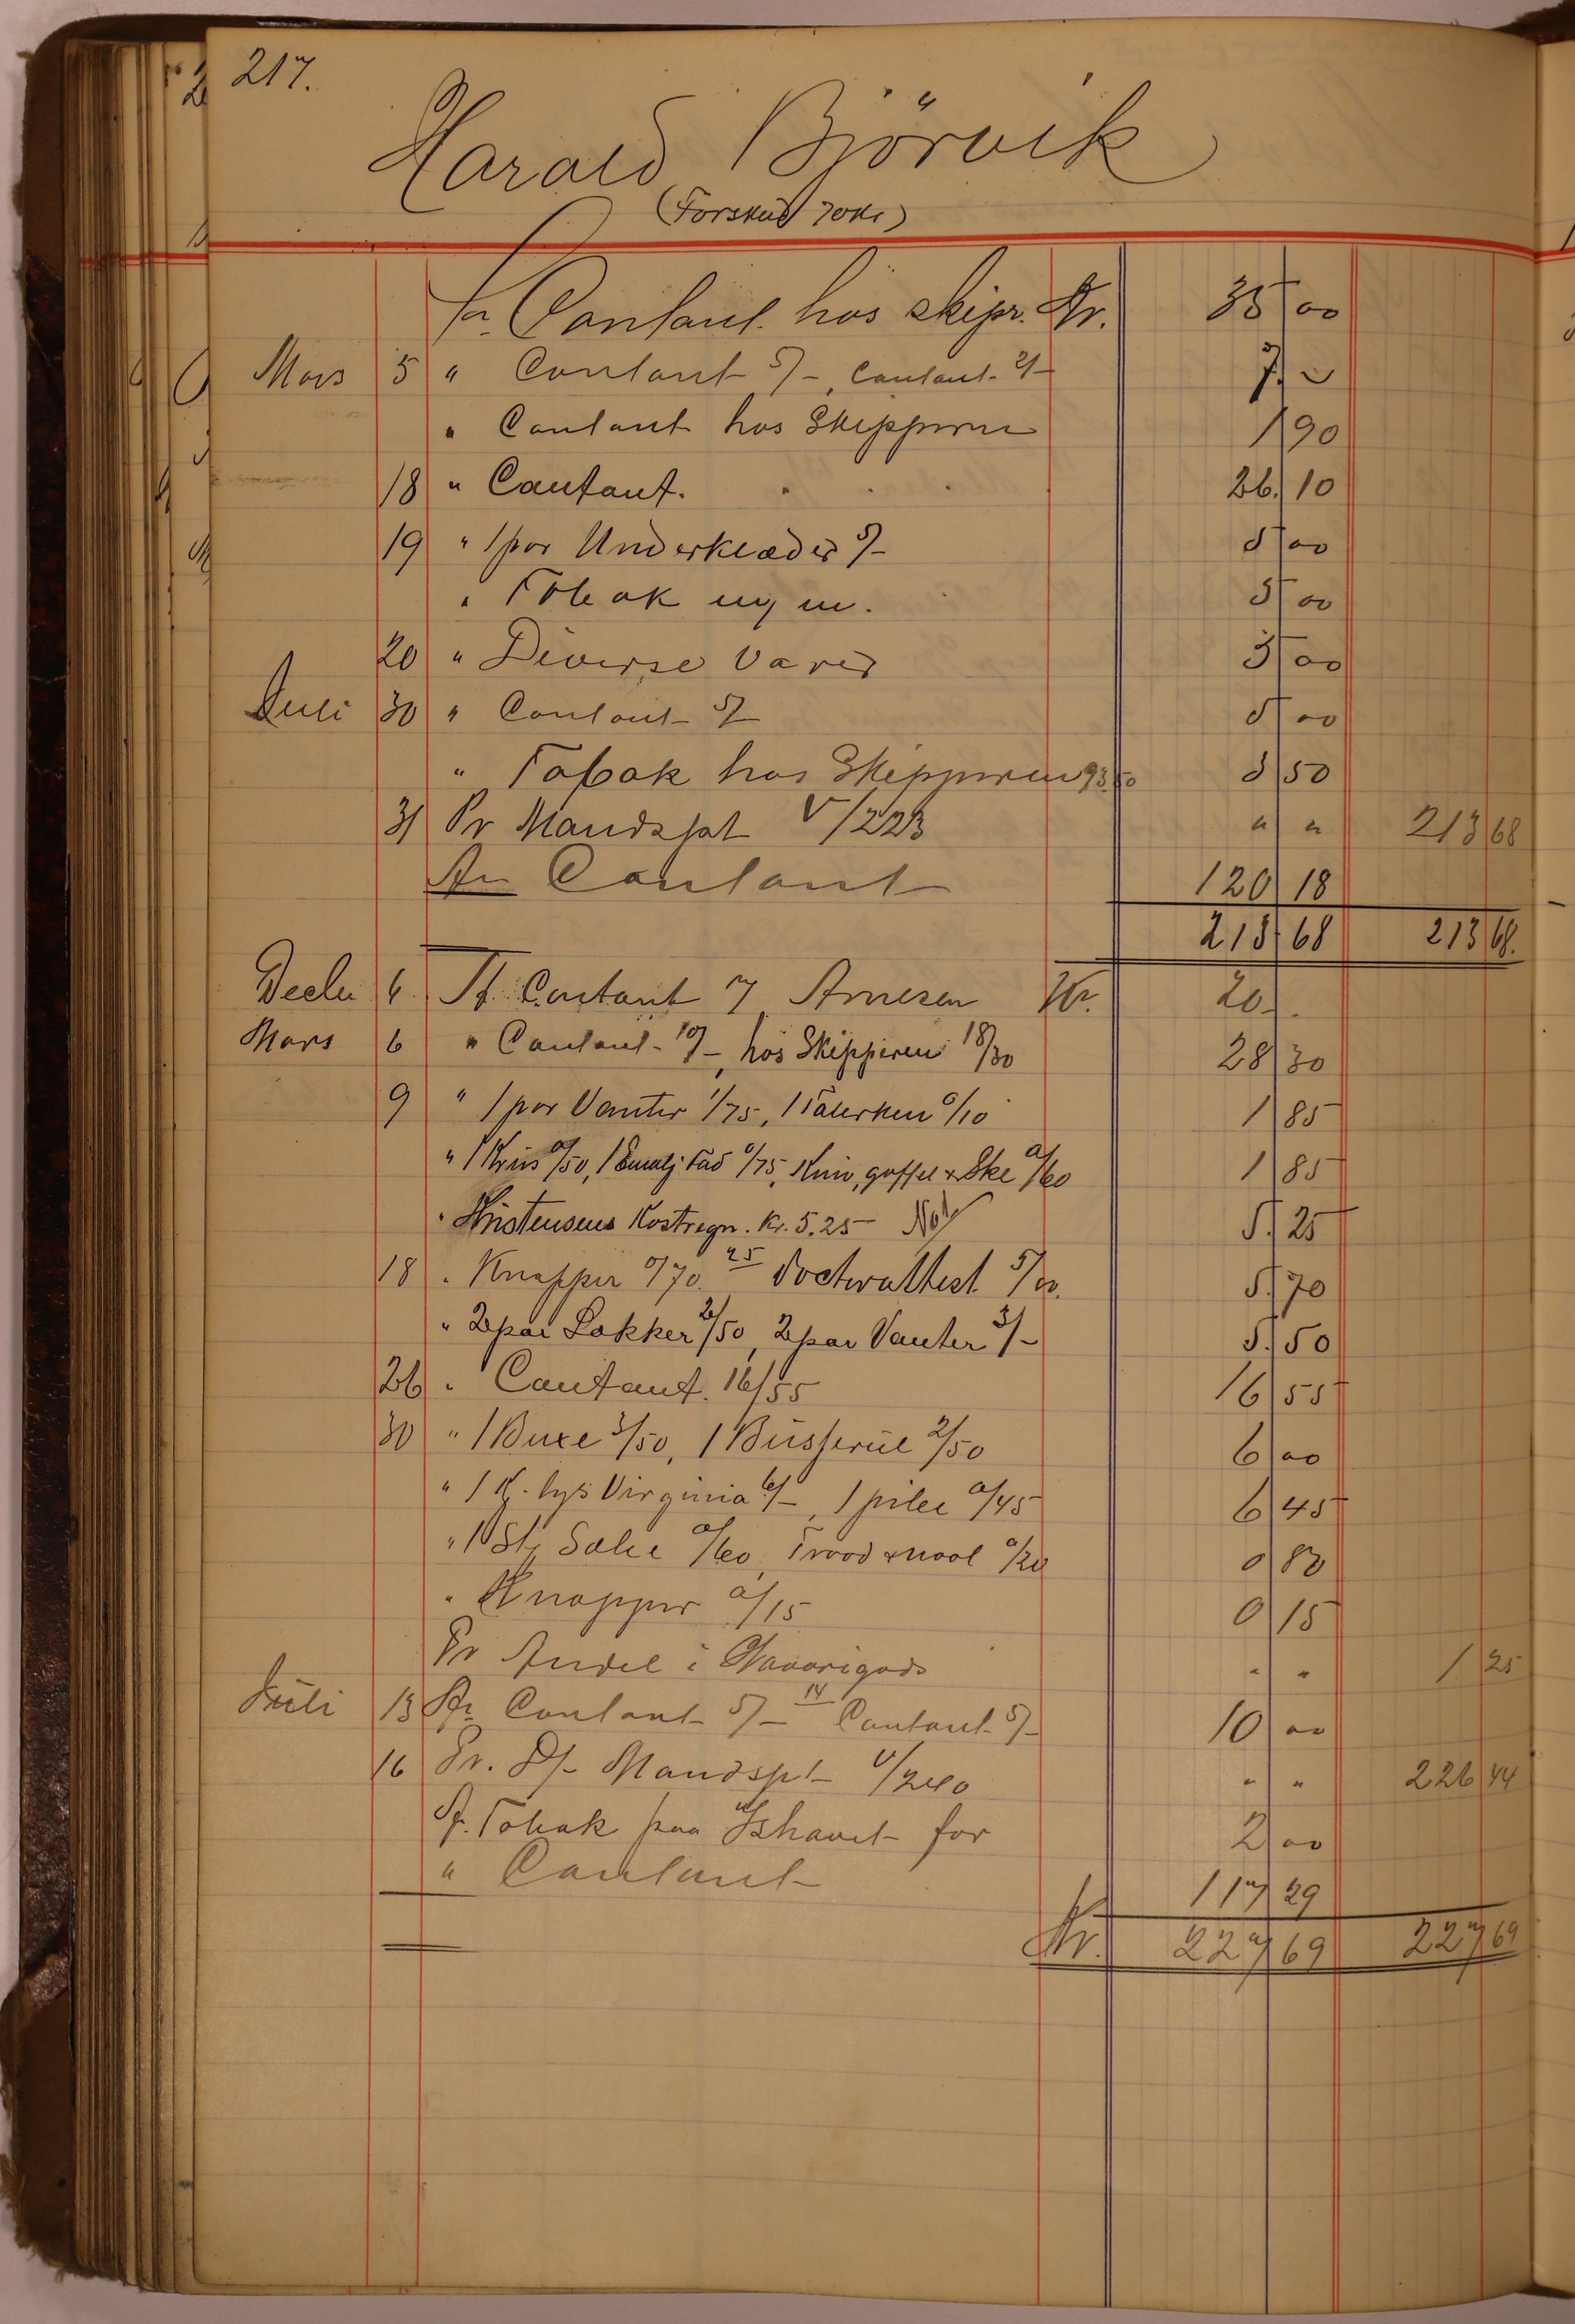 217.
Harald Björvik
(Forskud 70 Kr)
An Contant hos skipr. Kr. 35 00
Mars 5 " Contant 5/-, Contant 2/- 7. "
" Contant hos Skipperen 1 90
18 " Contant. 26. 10
19 " 1 par Underklæder 5/- 5 00
" Tobak m.m. 5 00
20 " Diverse Varer 3 00
Juli 30 " Contant 5/- 5 00
" Tobak hos Skipperen 93.50 5 50
31 Pr Mandspt V/223 " " 213 68
An Contant 120 18
213 68 213 68.
Decbr 6 An Contant 7 Arnesen Kr. 20.
Mars 6 " Contant 10/-, hos Skipperen 18/30 28 30
9 " 1 par Vanter 1/75, 1 Talerken 0/10 1 85
" 1 Krus 0/50, 1 Emalj Fad 0/75, Kniv, gaffel & Ske 0/60 1 85
" Kristensens Kostregn. Kr. 5.25 Not 5. 25
18 " Knapper 0/70. 25 Doctorattest 5/00. 5. 70
" 2 par Sokker 2/50, 2 par Vanter 3/- 5. 50
26 " Contant. 16/55 16 55
30 " 1 Buxe 3/50, 1 Busserul 2/50 6 00
" 1 K. lys Virginia 6/-, 1 pibe 0/45 6 45
" 1 St. Sæbe 0/60, Traad & naal 0/20 0 80
" Knapper 0/15 0 15
Pr Andel i Havarigods " " 1 25
Juli 13 An Contant 5/- 14 Contant 5/- 10 00
16 Pr. D/- Mandspt V/240 " " 226 44
An Tobak paa Ishavet for 2 00
" Contant 117 29
Kr. 227 69 227 69